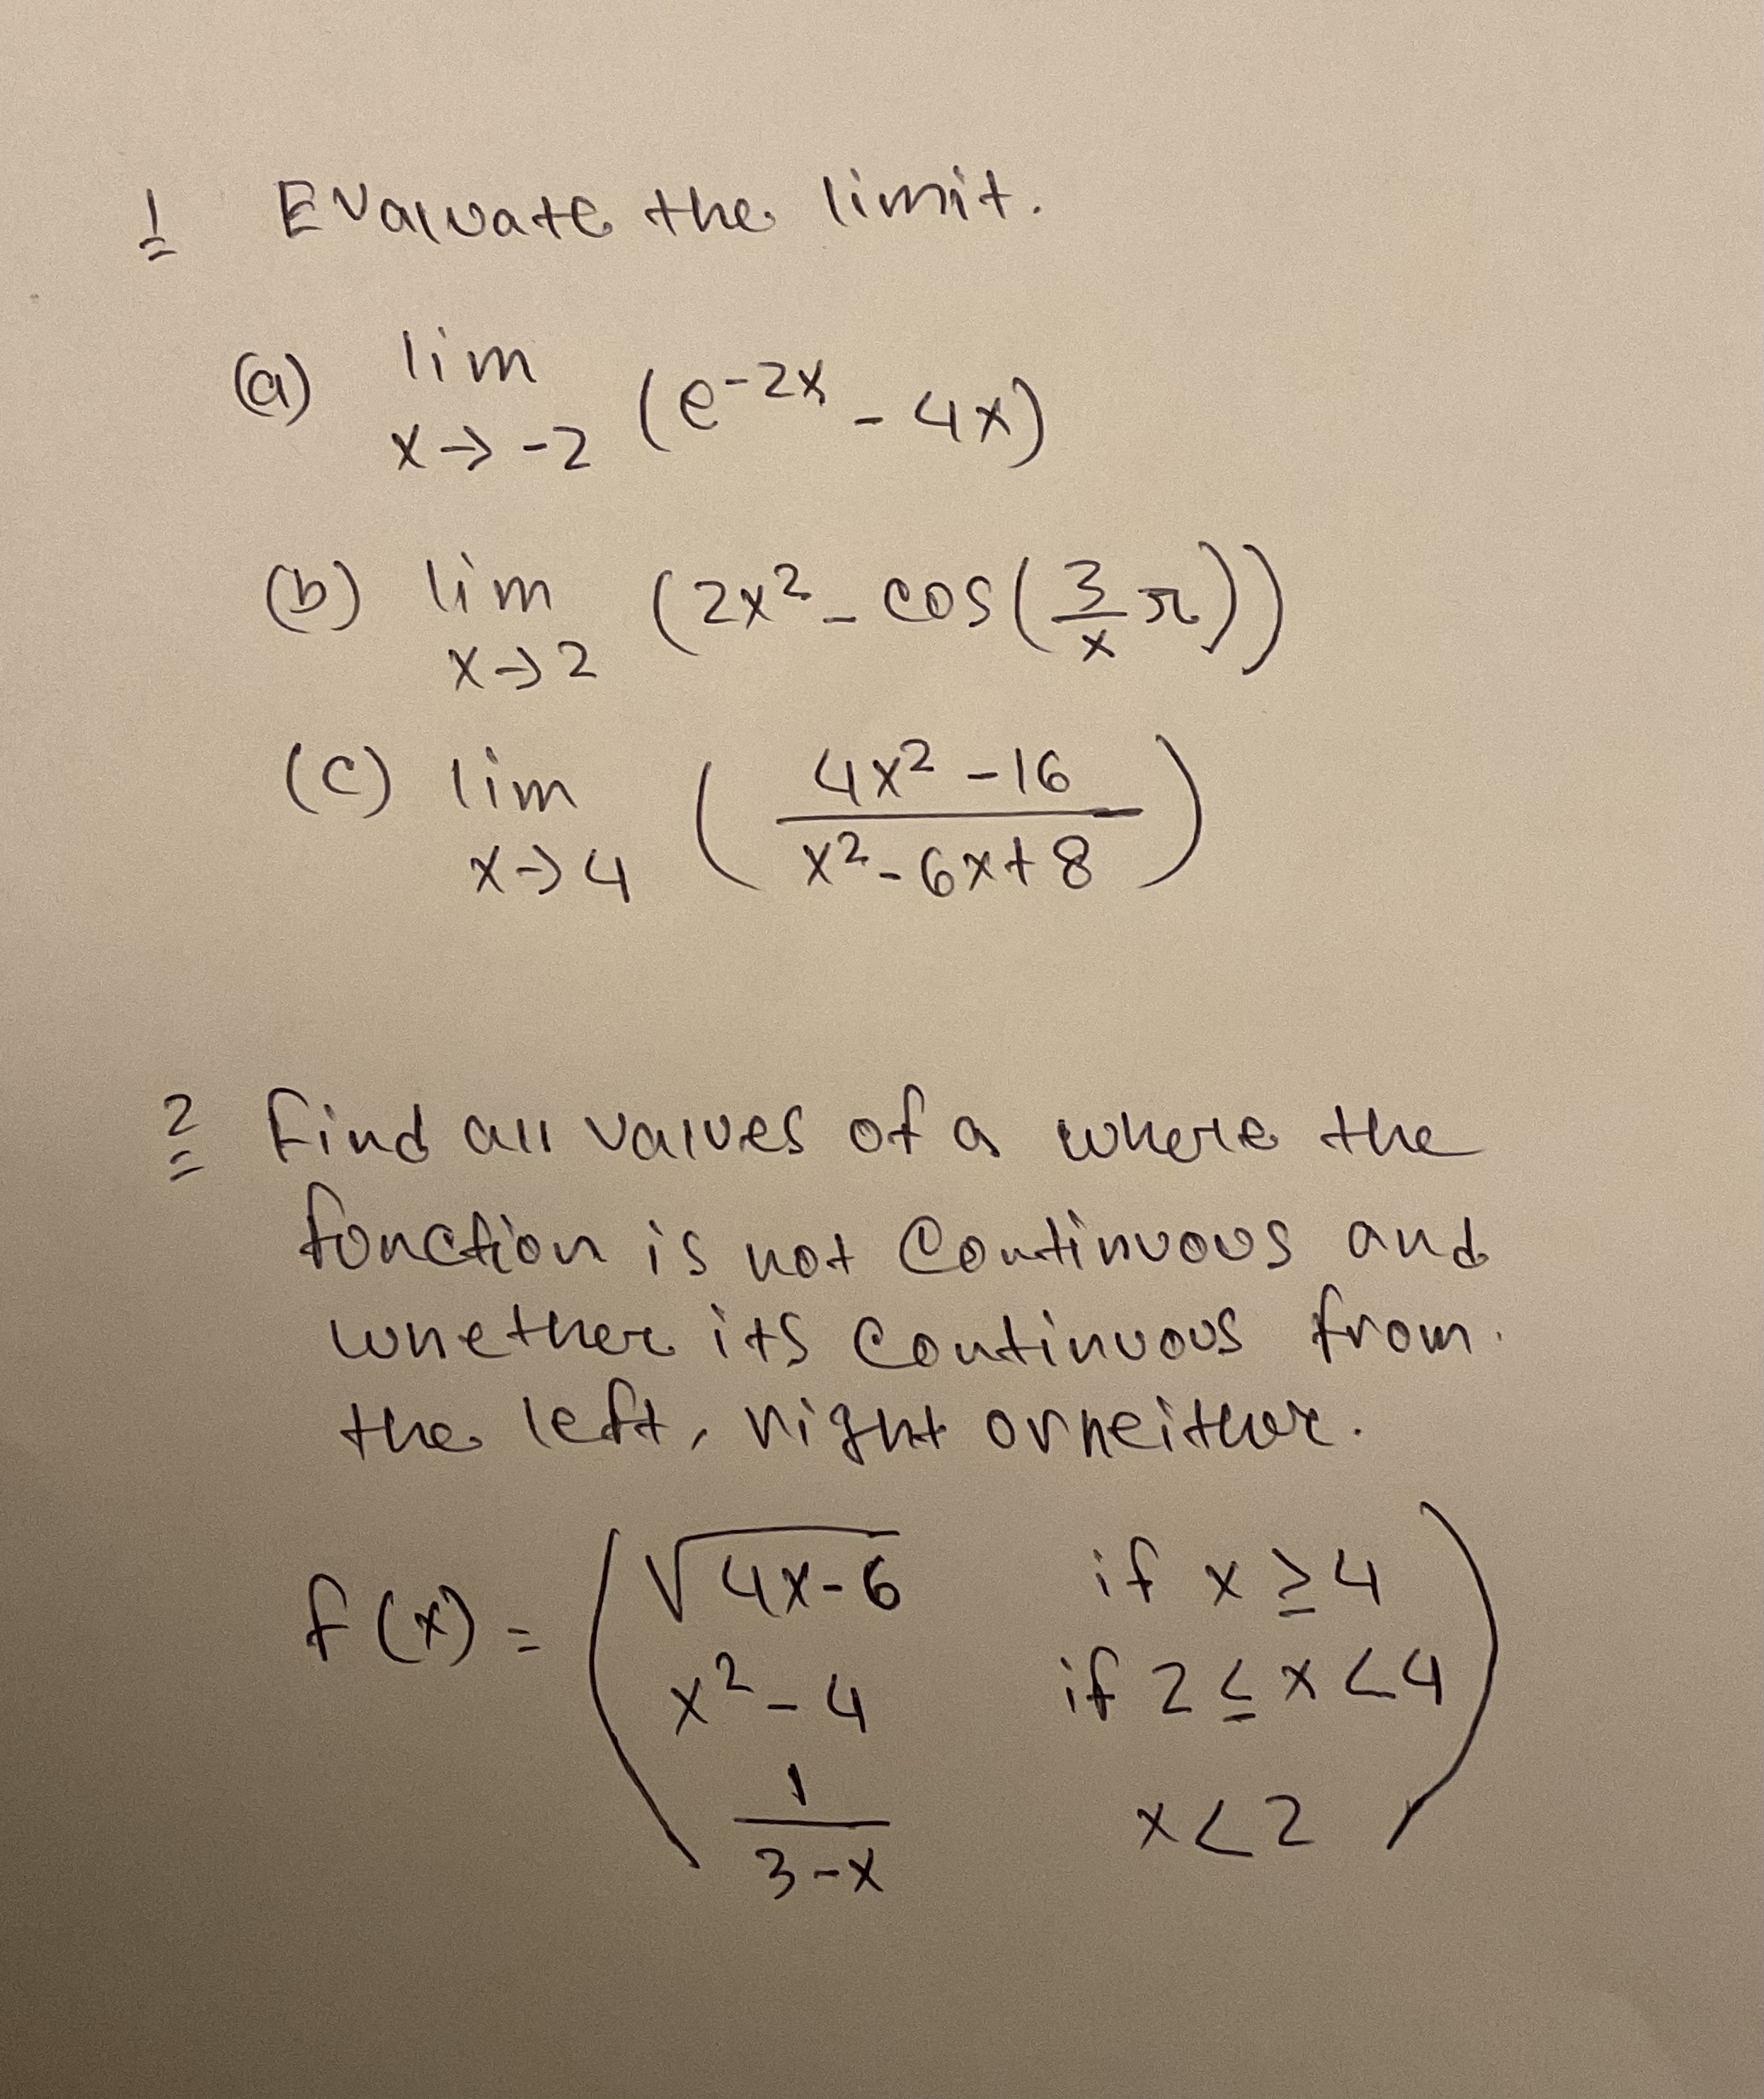 1 Evaluate the limit.
(a) lim x→-2 (e^{-2x} - 4x)
(b) lim x→2 (2x² - cos(3/x π))
(c) lim x→4 ( (4x² - 16)/(x² - 6x + 8) )
2 Find all values of a where the
function is not continuous and
whether its continuous from
the left, right or neither.
f(x) = ( √(4x-6) if x ≥ 4
x² - 4 if 2 ≤ x < 4
1/(3-x) x < 2 )